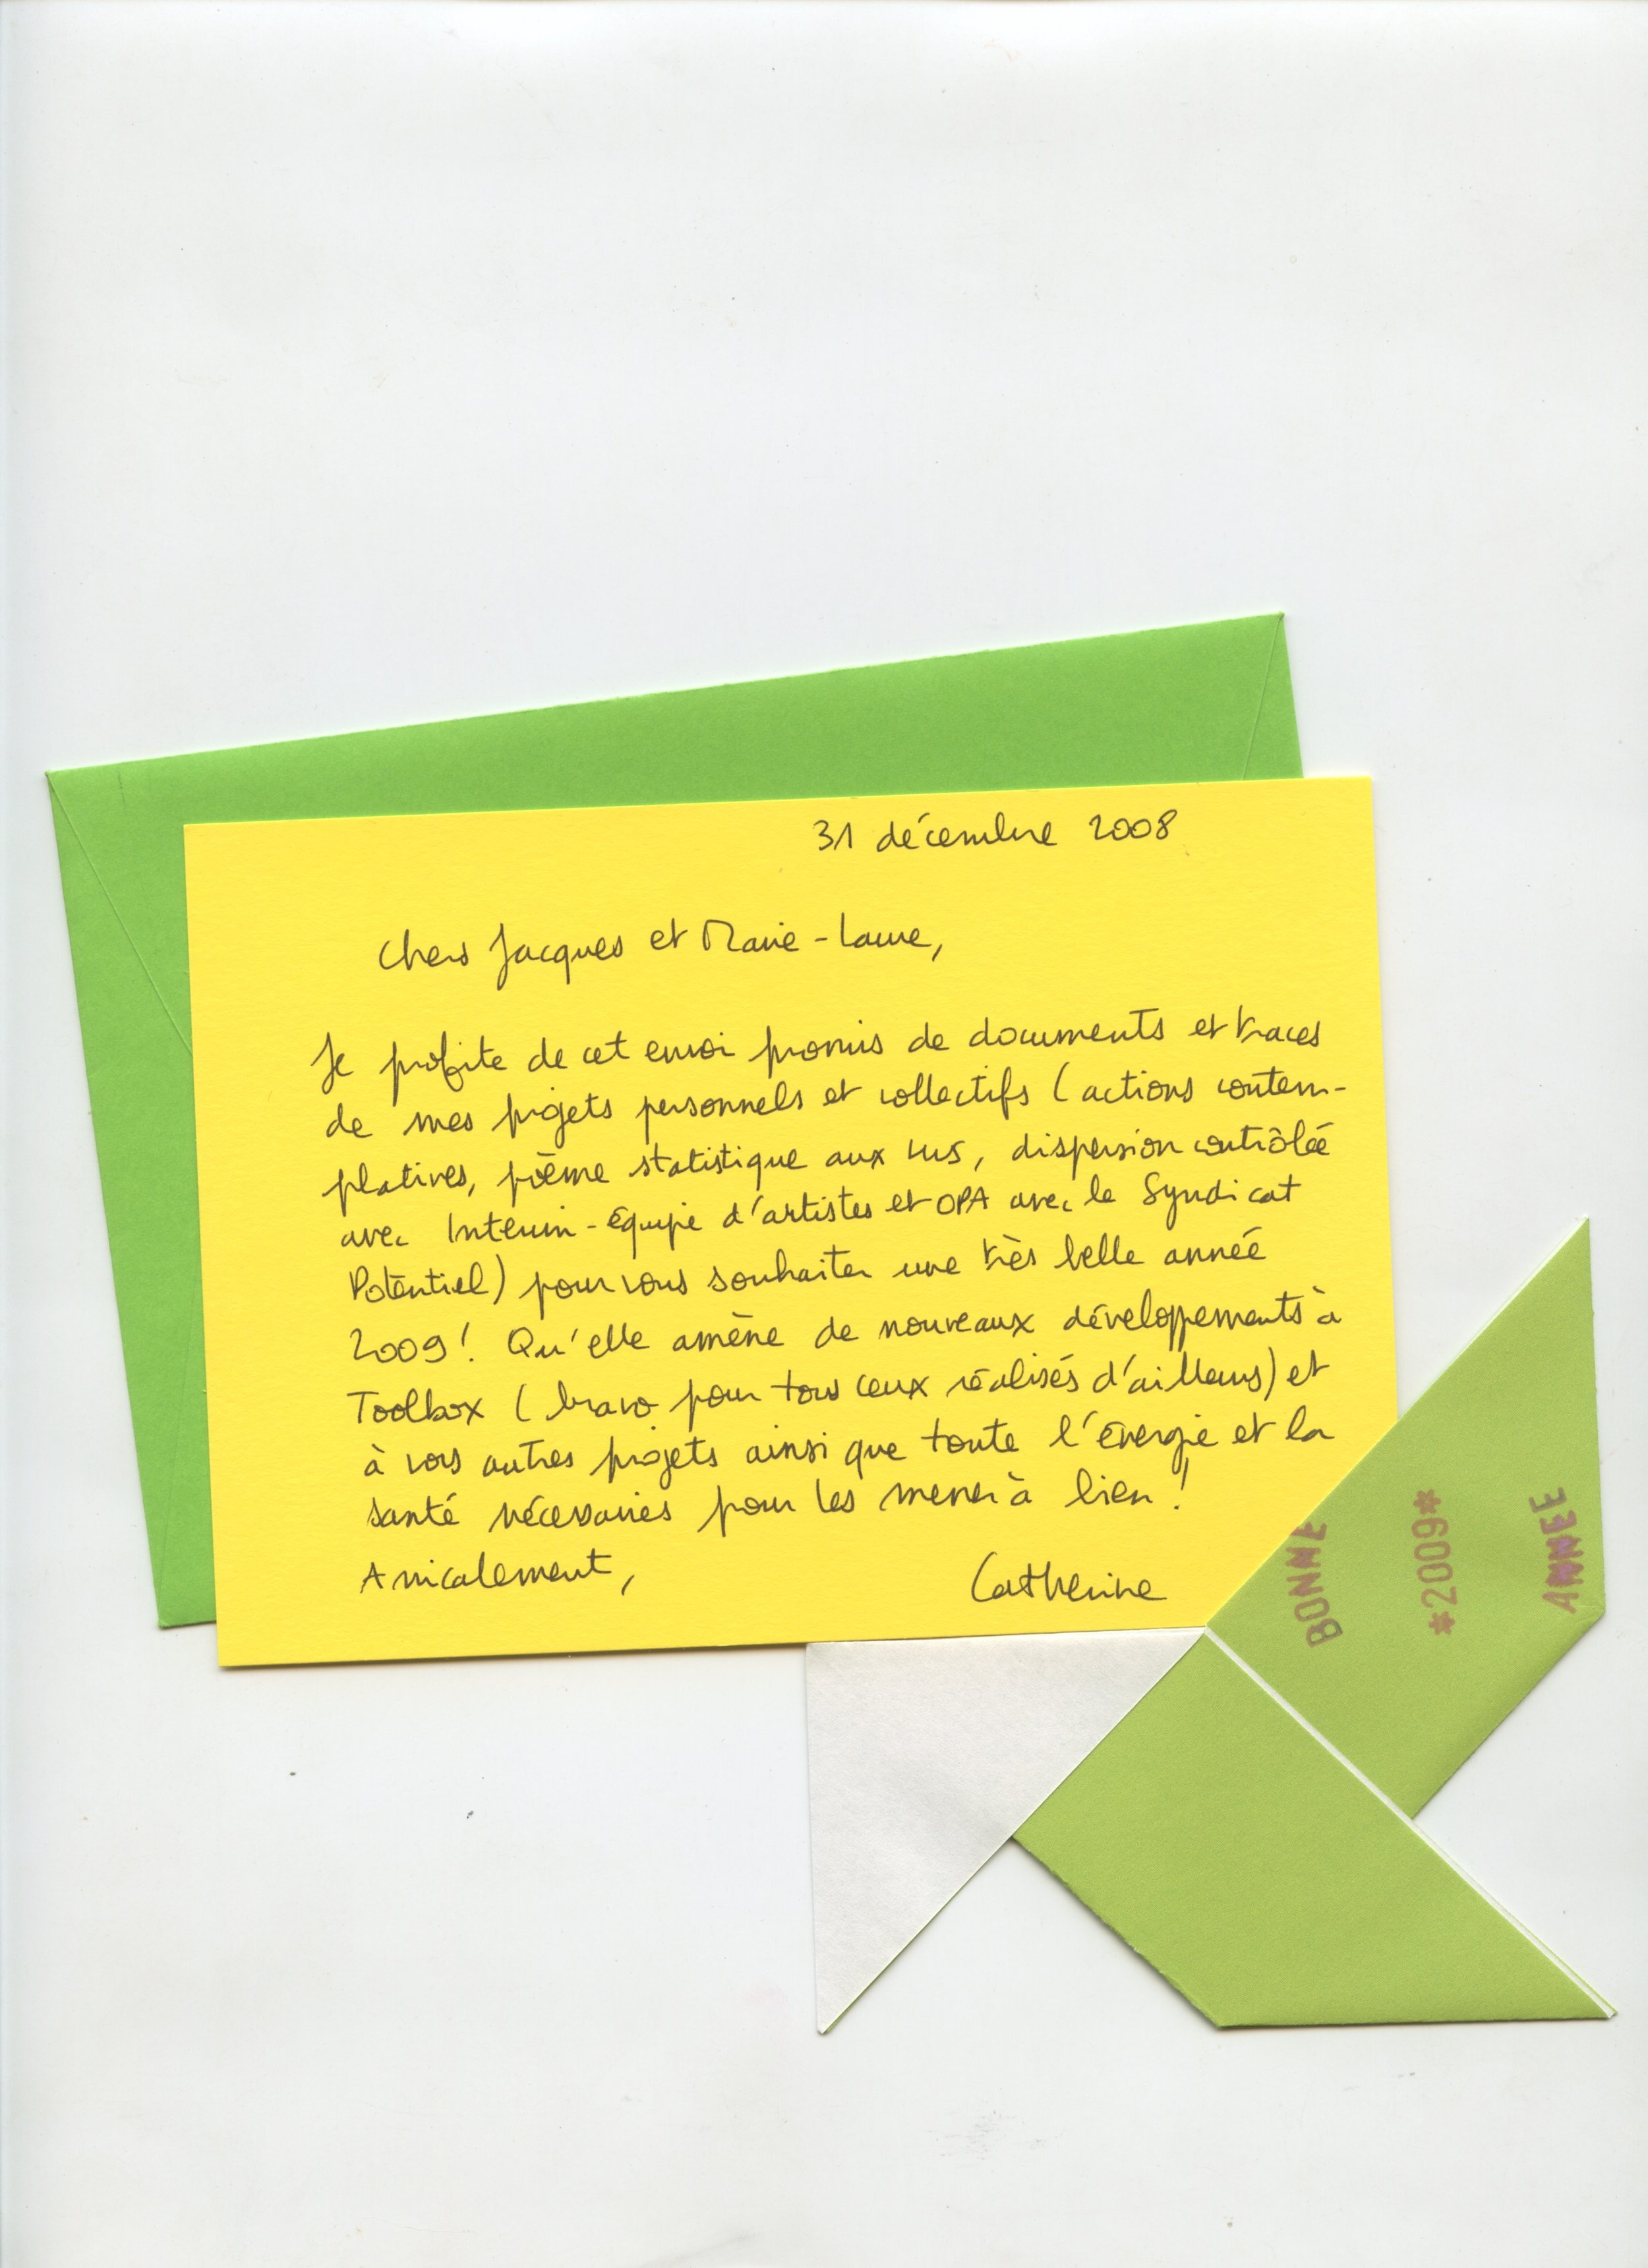 31 décembre 2008
Chers Jacques et Marie-Laure,
Je profite de cet envoi promis de documents et traces
de mes projets personnels et collectifs (actions contem-
platives, poème statistique aux , dispersion contrôlée
avec Interim-équipe d'artistes et OPA avec le Syndicat
Potentiel) pour vous souhaiter une très belle année
2009! Qu'elle amène de nouveaux développements à
Toolbox (bravo pour tous ceux réalisés d'ailleurs) et
à vos autres projets ainsi que toute l'énergie et la
santé nécessaires pour les mener à bien!
Amicalement,
Catherine
BONNE
*2009*
ANNEE